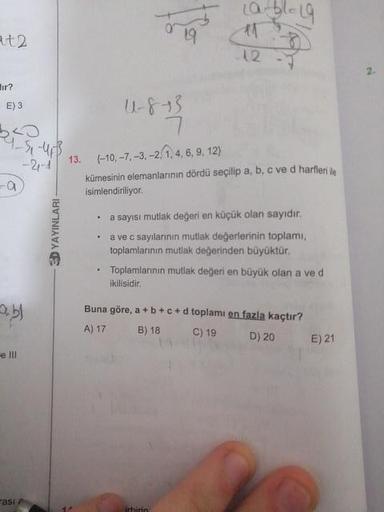 a+2
19
|a-b|=19
11 -8
-12 -7
2-
dır?
E) 3
4-8+3
7
b<0
-2,-1
-a
3D YAYINLARI
13. {-10, -7, -3, -2, 1, 4, 6, 9, 12}
kümesinin elemanlarının dördü seçilip a, b, c ve d harfleri ile
isimlendiriliyor.
• a sayısı mutlak değeri en küçük olan sayıdır.
• a ve c sayılarının mutlak değerlerinin toplamı,
toplamlarının mutlak değerinden büyüktür.
• Toplamlarının mutlak değeri en büyük olan a ve d
ikilisidir.
Buna göre, a + b + c + d toplamı en fazla kaçtır?
A) 17 B) 18 C) 19 D) 20 E) 21
a,b|
e III
rası
birbirin